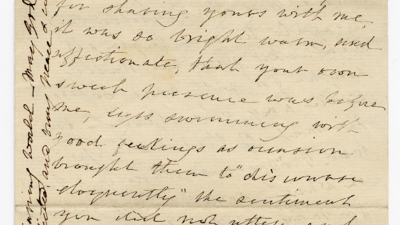 for sharing yours with me,
it was so bright warm, and
affectionate, that your own
sweet presence was before
me, eyes swimming with
good feelings as occasion
brought them to "discourse
eloquently" the sentiment
you did not utter, and
world - may God
and may peace